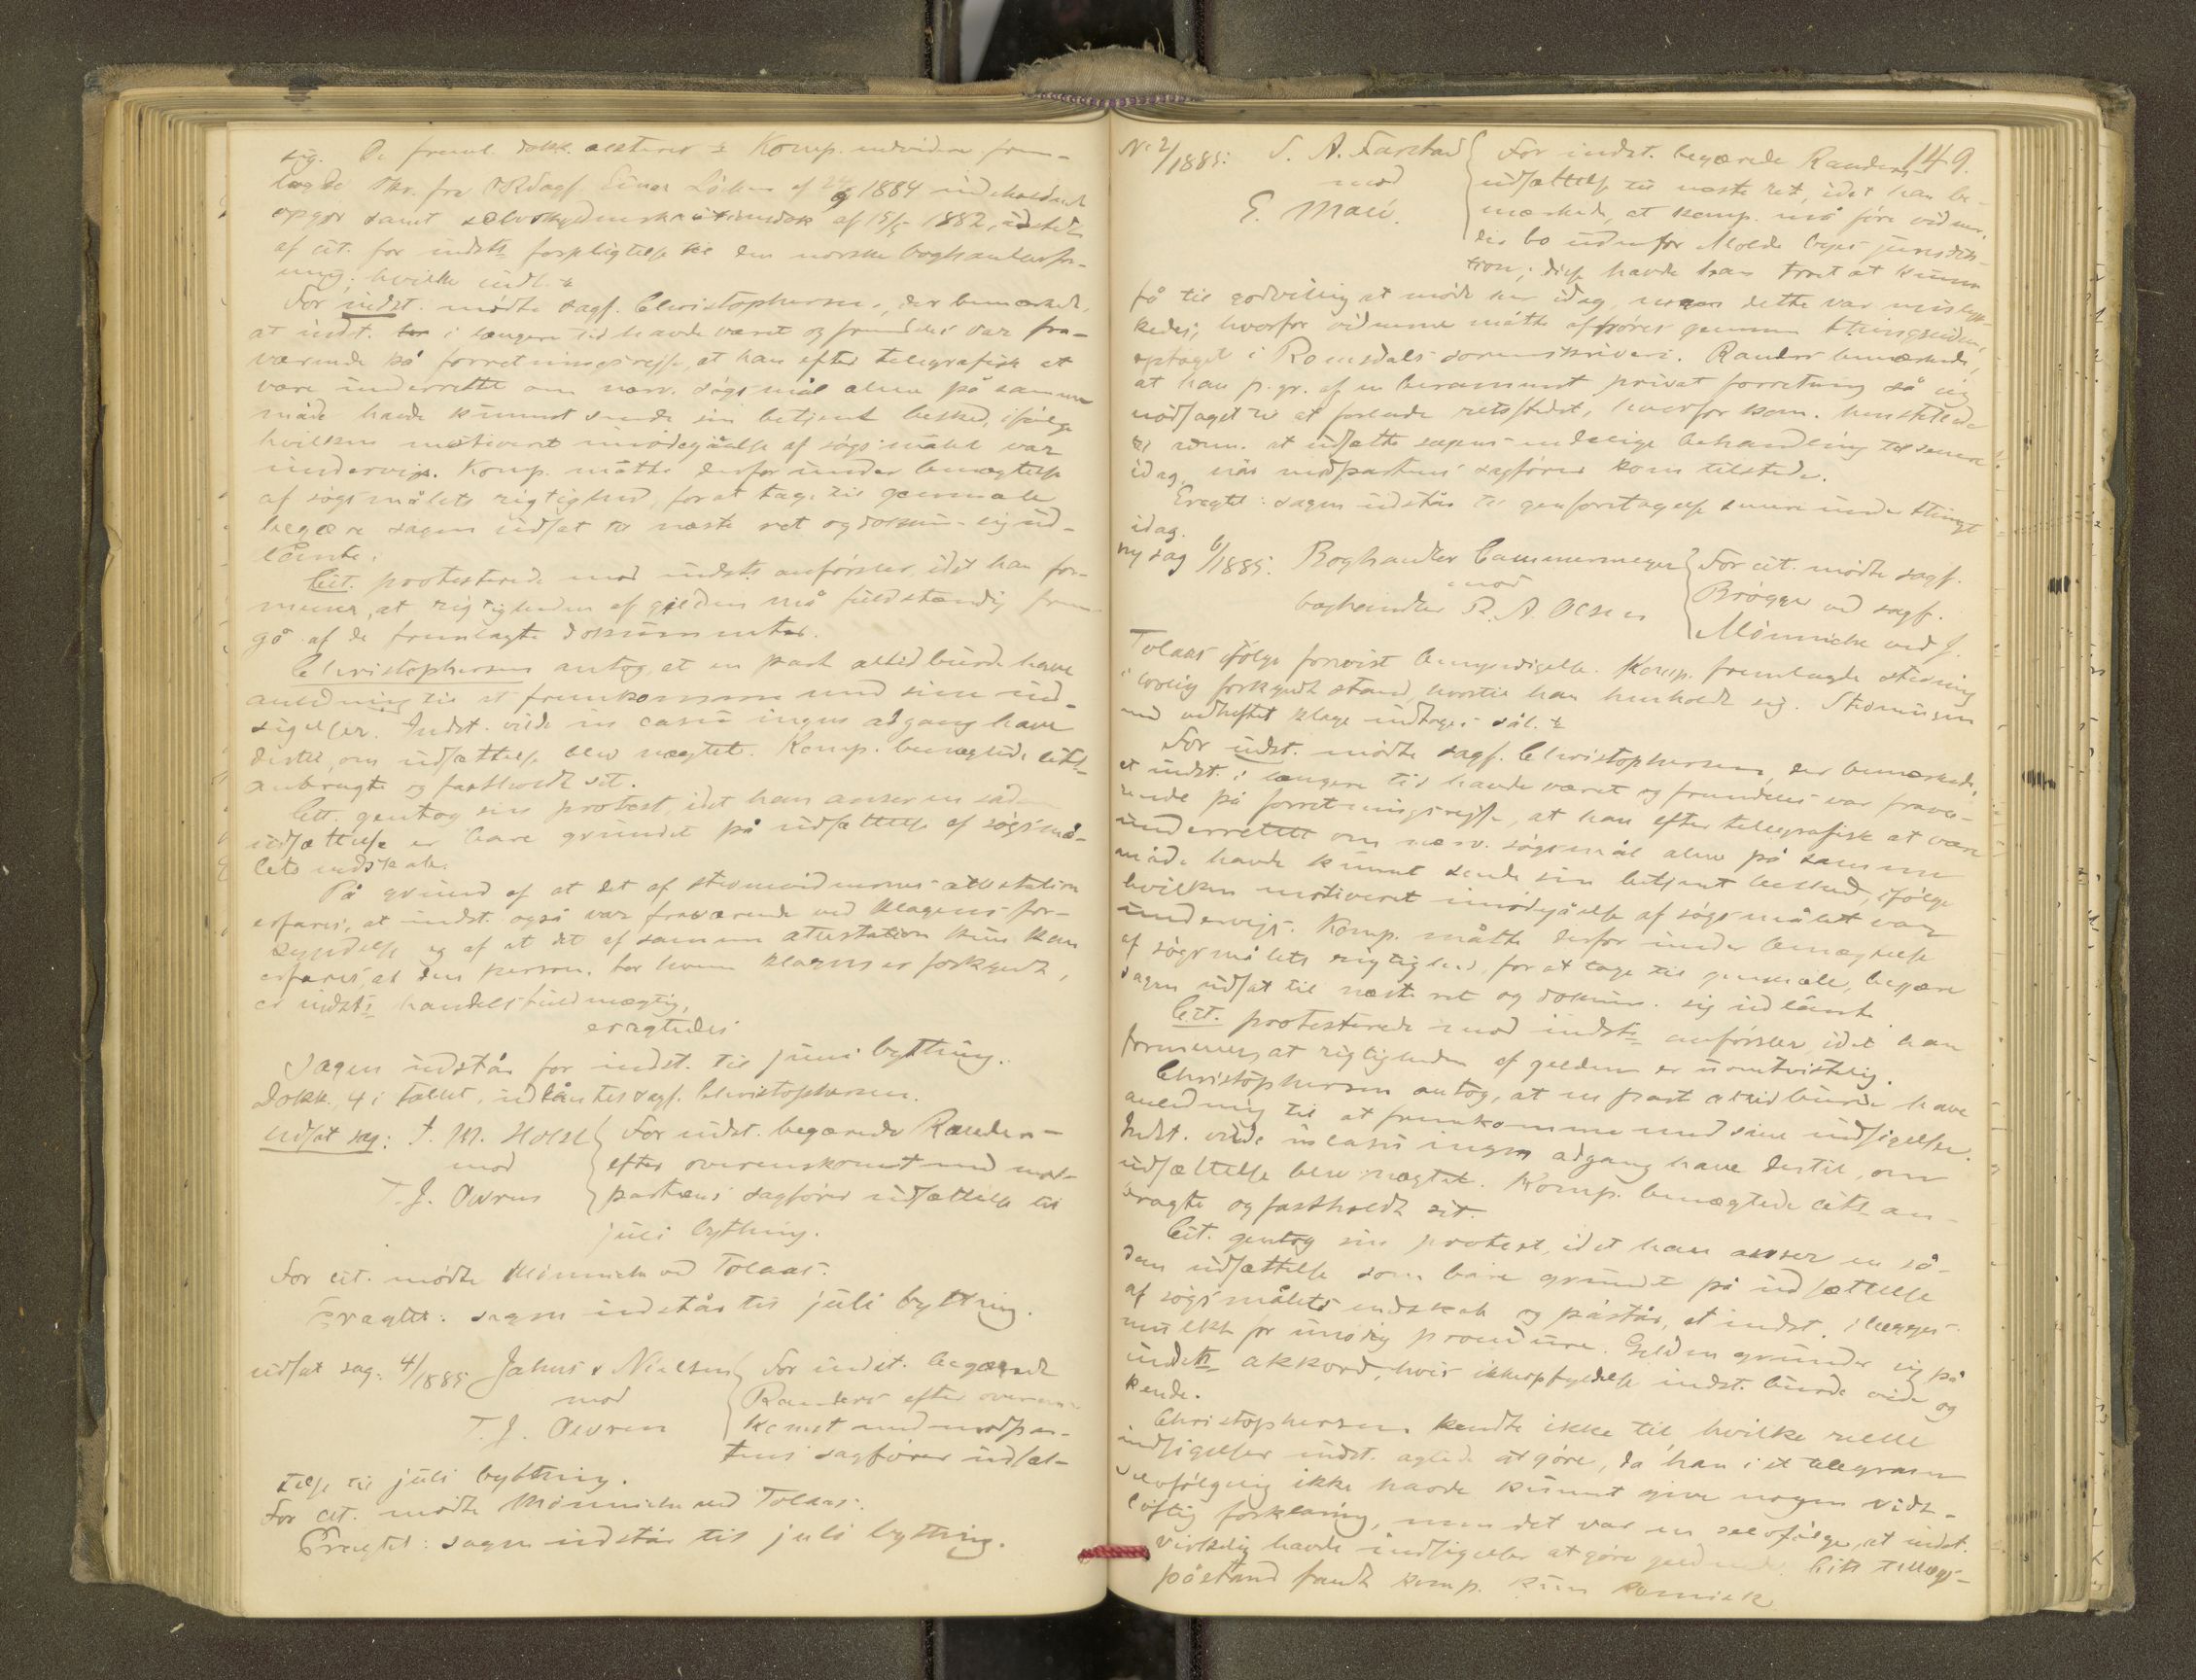 sig. De freml. dokk. akteres & Komp. endvidere frem-
lagde skr. fra ORsagf. Einar Löchen af 24/9 1884 indeholdende
opgjør samt selvskyldnerkautionsdok af 15/5 1882, udstedt
af cit. for indsts forpligtelse til den norske boghandlerfor-
ening; hvilke indl. &
For indst. mødte sagf. Christophersen, der bemærkede,
at indst. i længere tid havde været og fremdeles var fra-
værende på forretningsrejse, at han efter telegrafisk at
være underrettet om nærv. søgsmål alene på samme
måde havde kunnet sende sin betjent besked, ifølge
hvilken motiveret imødegåelse af søgsmålet var
undervejs. Komp. måtte derfor under benægtelse
af søgsmålets rigtighed, for at tage til genmæle
begære sagen udsat til næste ret og dokum. sig ud-
lånte.
Cit. protesterede mod indsts anførsler, idet han for-
mener, at rigtigheden af gjelden må fuldstændig frem-
gå af de fremlagte dokumenter.
Christophersen antog, at en part altid burde have
anledning til at fremkomme med sine ind-
sigelser. Indst. vilde in casu ingen adgang have
dertil, om udsættelse blev nægtet. Komp. benægtede cits
anbragte og fastholdt sit.
Cit. gentog sin protest, idet han anser en sådan
udsættelse er bare grundet på udsættelse af søgsmå-
lets endskab.
På grund af at det af stevnevidnernes attestation
erfares, at indst. også var fraværende ved klagens for-
kyndelse og af at det af samme attestation kun kan
erfares, at den person, for hvem klagen er forkyndt,
er indsts handelsfuldmægtig,
eragtedes
Sagen udstår for indst. til juni bything.
Dokk., 4 i tallet, udlåntes sagf. Christophersen.
Udsat sag: J. M. Holst mod T. J. Owren { For indst. begærede Randers
efter overenskomst med mod-
partens sagfører udsættelse til
juli bything.
For cit. mødte Münnich ved Tolaas.
Eragtet: sagen udstår til juli bything.
udsat sag: 4/1885 Jahns & Nielsen mod T. J. Owren { For indst. begærede
Randers efter overens-
komst med modpar-
tens sagfører udsæt-
telse til juli bything.
For cit. mødte Münnich ved Tolaas.
Eragtet: sagen udstår til juli bything.
149.
No 2/1885: S. A. Farstad mod E. Malé. { For indst. begærede Randers
udsættelse til næste ret, idet han be-
mærkede, at komp. må føre vidner,
der bo udenfor Molde byes jurisdik-
tion; disse havde han troet at kunne
få til godvillig at møde her idag, men dette var mislyk-
kedes, hvorfor vidnerne måtte afhøres gennem thingsvidne,
optaget i Romsdals sorenskriveri. Randers bemærkede,
at han p. gr. af en berammet privat forretning så sig
nødsaget til at forlade retsstedet, hvorfor kom. henstillede
til adm. at udsætte sagens endelige behandling til senere
idag, når modpartens sagfører kom tilstede.
Eragtet: sagen udstår til genforetagelse senere under thinget
idag.
ny sag 6/1885: Boghandler Cammermeyer mod boghandler P. A. Olsen { For cit. mødte sagf.
Brøgger ved sagf.
Münnich ved J.
Tolaas ifølge forevist bemyndigelse. Komp. fremlagde stevning
i lovlig forkyndt stand, hvortil han henholdt sig. Stevningen
med vedheftet klage indtages sål. &
For indst. mødte sagf. Christophersen, der bemærkede,
at indst. i længere tid havde været og fremdeles var fravæ-
rende på forretningsrejse, at han efter telegrafisk at være
underrettet om nærv. søgsmål alene på samme
måde havde kunnet sende sin betjent besked, ifølge
hvilken motiveret imødegåelse af søgsmålet var
undervejs. Komp. måtte derfor under benægtelse
af søgsmålets rigtighed, for at tage til genmæle, begære
sagen udsat til næste ret og dokum. sig udlånte.
Cit. protesterede mod indsts anførsler, idet han
formener, at rigtigheden af gelden er uomtvistelig.
Christophersen antog, at en part altid burde have
anledning til at fremkomme med sine indsigelser.
Indst. vilde in casu ingen adgang have dertil, om
udsættelse blev nægtet. Komp. benægtede cits an-
bragte og fastholdt sit.
Cit. gentog sin protest, idet han anser en så-
dan udsættelse som bare grundet på udsættelse
af søgsmålets endskab og påstår, at indst. ilægges
mulkt for unødig procedure. Gelden grunder sig på
indsts akkord, hvis ikkeopfyldelse indst. burde vide og
kende.
Christophersen kendte ikke til, hvilke reelle
indsigelser indst. agtede at gøre, da han i et telegram
selvfølgelig ikke havde kunnet give nogen vidt-
løftig forklaring, men det var en selvfølge, at indst.
virkelig havde indsigelser at gøre geldende. Cits tillægs-
påstand fandt komp. kun komisk